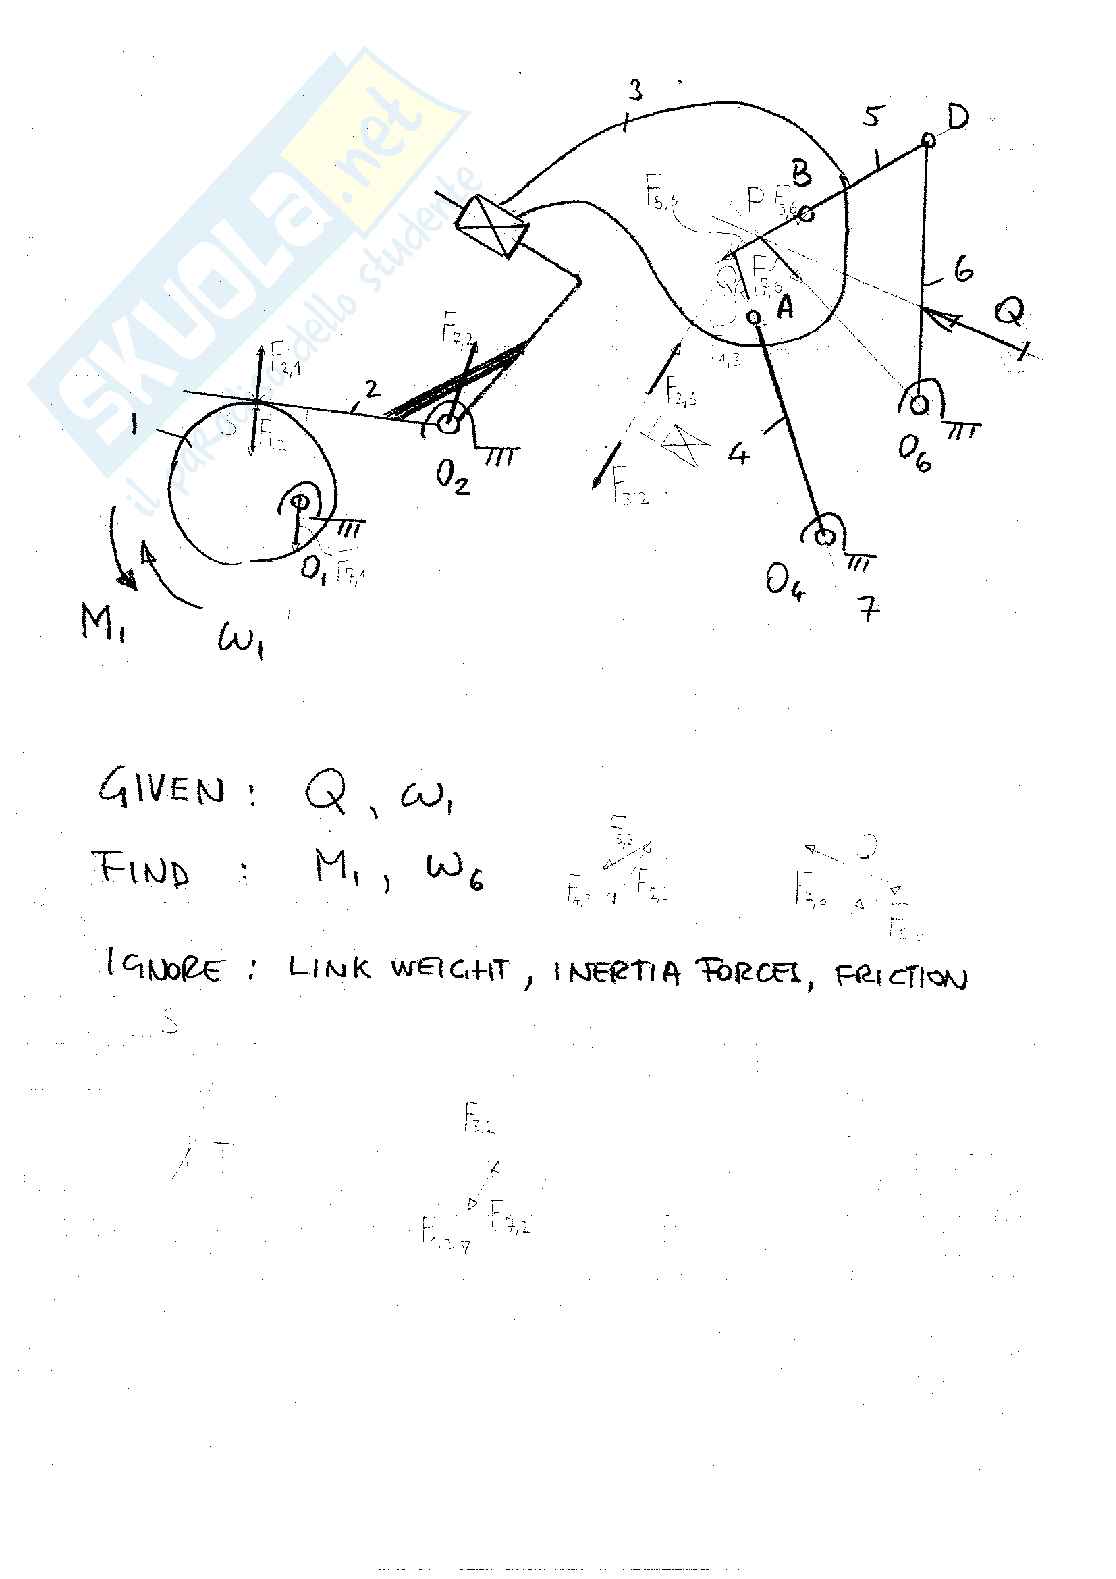 SKUOLA.net
il paradiso dello studente
3
5
D
B
F5,3
P
F5,6
6
Q
A
F7,2
F2,1
2
S
F1,2
1
F2,3
4
F3,2
O2
O6
O1
F7,1
O4
7
M1
ω1
GIVEN : Q , ω1
FIND : M1 , ω6
IGNORE : LINK WEIGHT , INERTIA FORCES, FRICTION
S
F3,2
T
F7,2